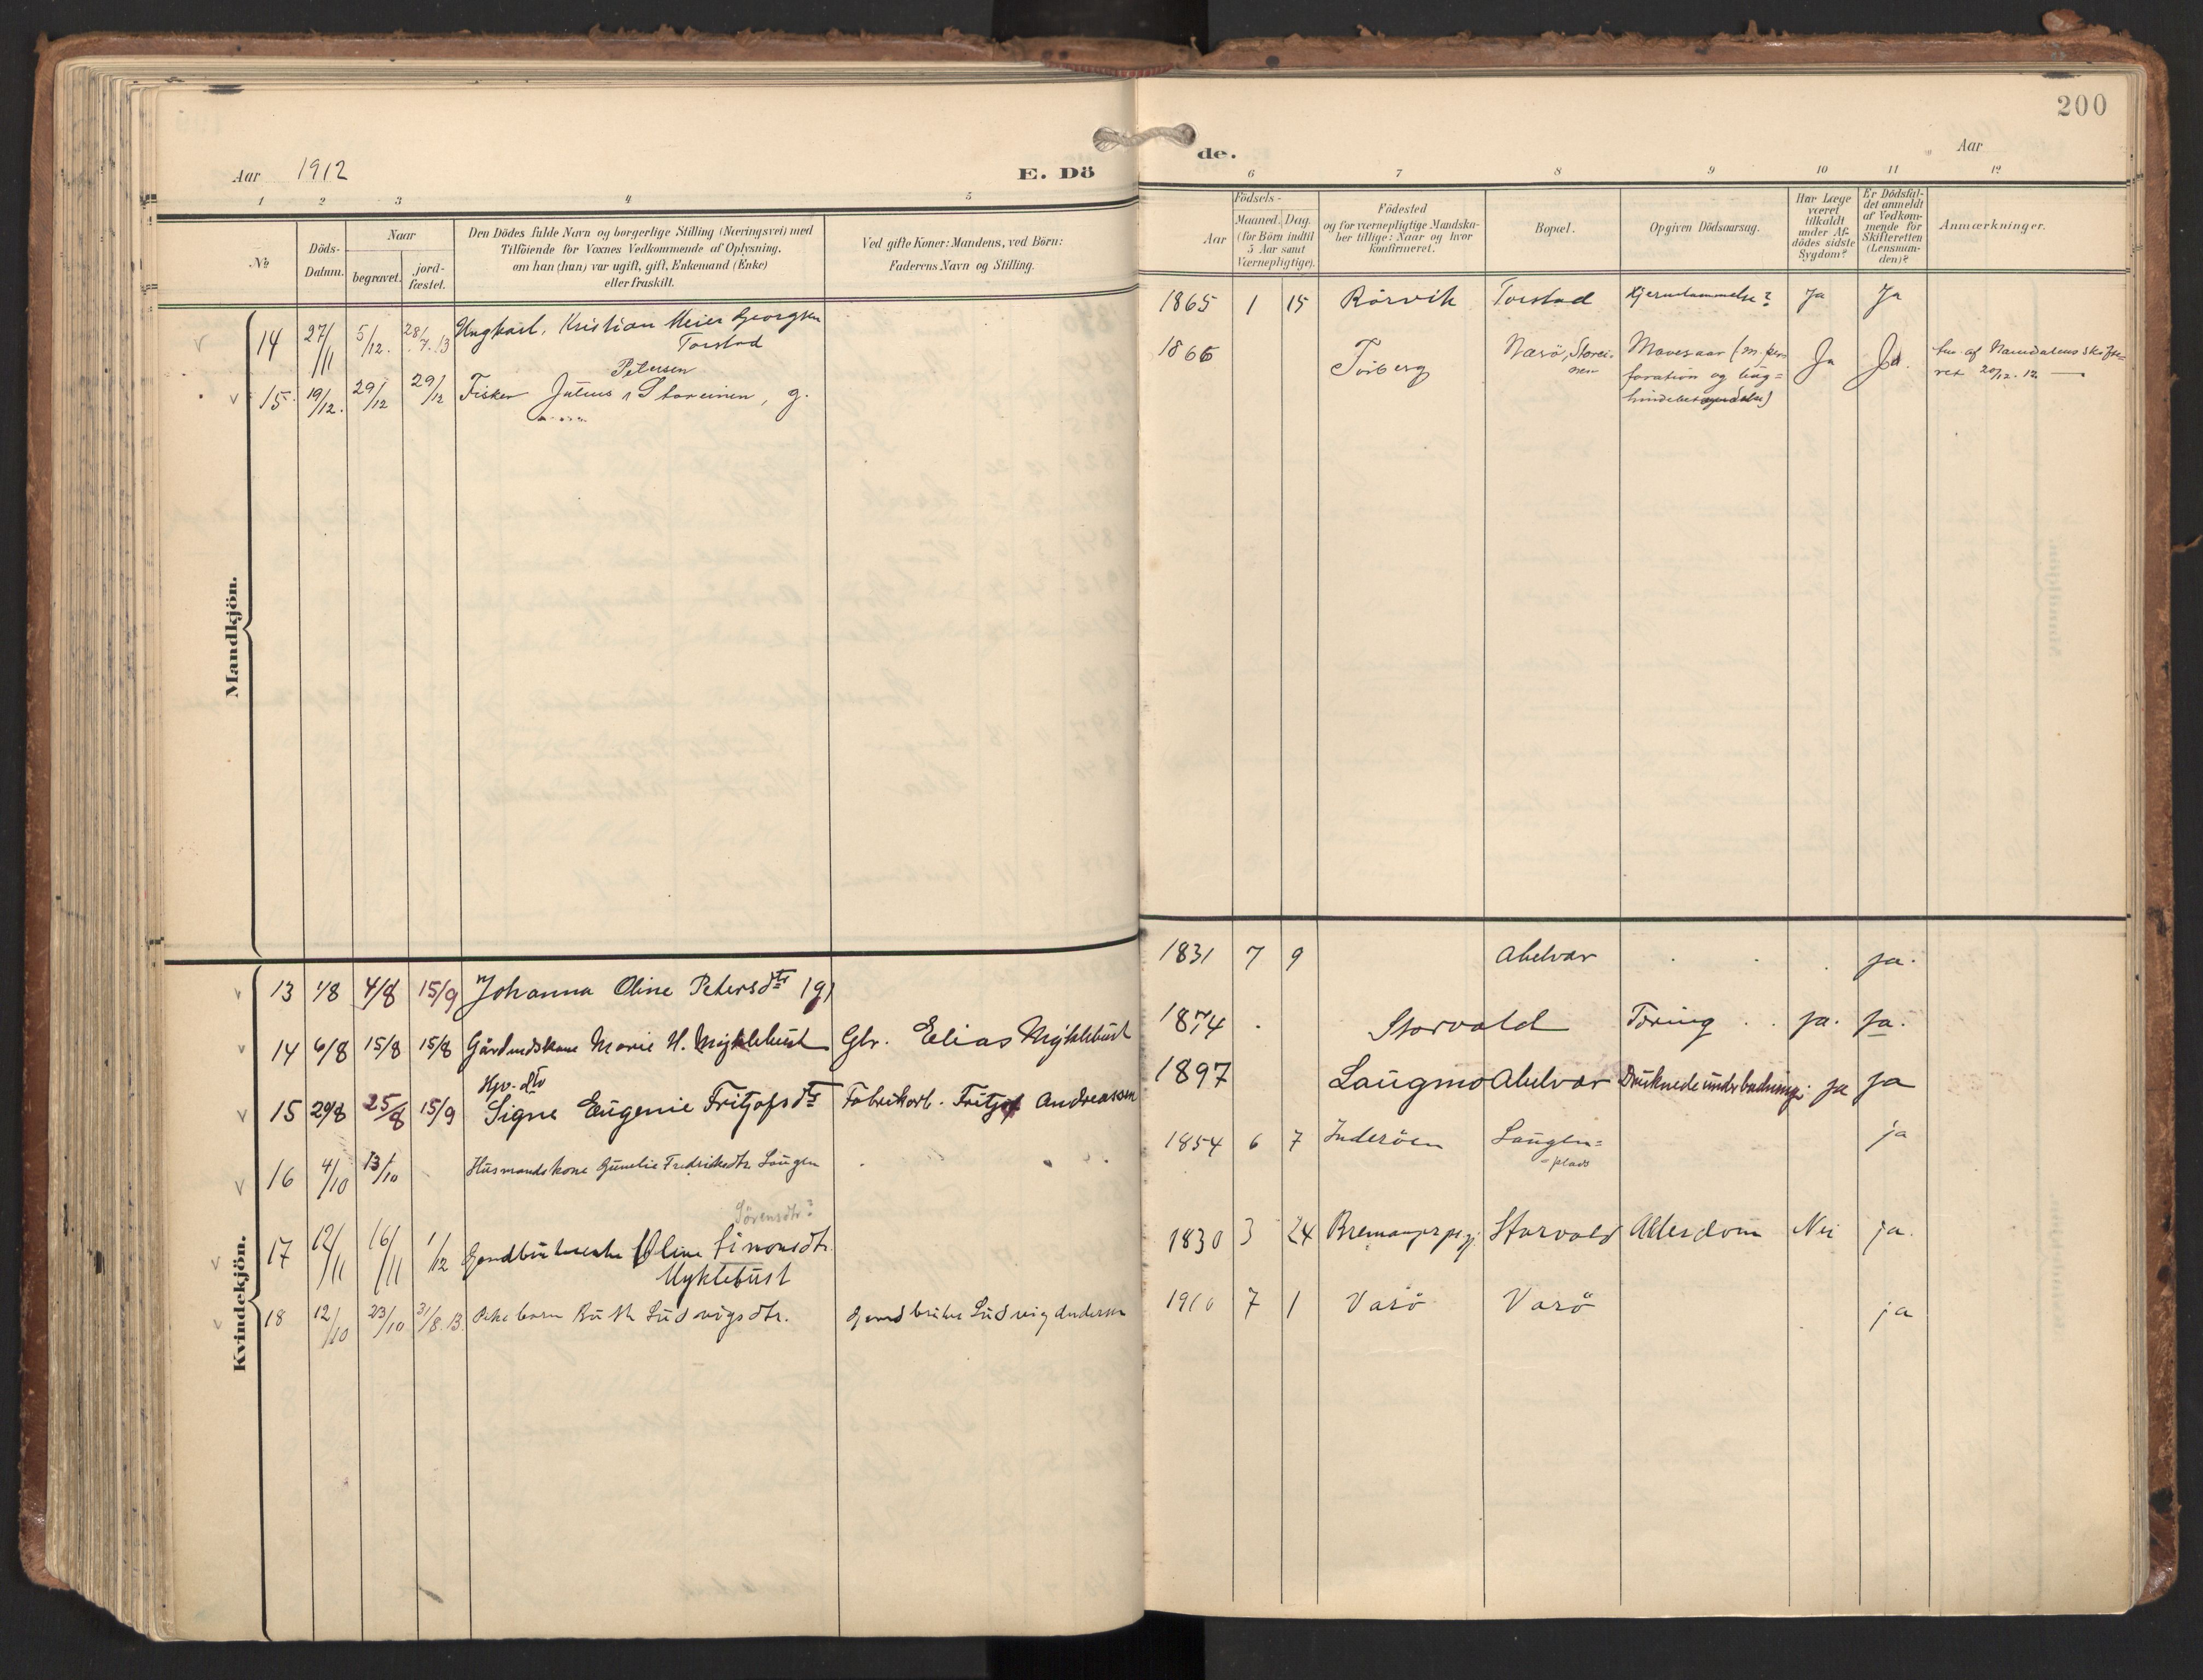 200
Aar 1912
E. Dö
de.
Aar
1 2 3 4 5 6 7 8 9 10 11 12
No
Döds-
Datum.
Naar
begravet.
jord-
fæstet.
Den Dödes fulde Navn og borgerlige Stilling (Næringsvei) med
Tilföiende for Voxnes Vedkommende af Oplysning,
om han (hun) var ugift, gift, Enkemand (Enke)
eller fraskilt.
Ved gifte Koner: Mandens, ved Börn:
Faderens Navn og Stilling.
Födsels-
Aar
Maaned. Dag.
(for Börn indtil
5 Aar samt
Værnepligtige).
Födested
og for værnepligtige Mandska-
ber tillige: Naar og hvor
konfirmeret.
Bopæl.
Opgiven Dödsaarsag.
Har Læge
været
tilkaldt
under Af-
dödes sidste
Sygdom?
Er Dödsfal-
det anmeldt
af Vedkom-
mende for
Skifteretten
(Lensman-
den)?
Anmærkninger.
Mandkjön.
14 27/11 5/12. 28/7.13 Ungkarl. Kristian Meier Georgsen
Torstad
1865 1 15 Rörvik Torstad Ja Ja
Petersen
15. 19/12. 29/12 29/12 Fisker Julius Storeinen, g.
1866 Torberg Nærö, Storei-
nen
Mavesaar (m. per-
foration og bug-
Ja Ja.
af Namdalens skifte-
ret 20/12. 12.
Kvindekjön.
13 1/8 4/8 15/9 Johanna Oline Petersdtr (g)
1831 7 9 Abelvær ja.
14 6/8 15/8 15/8 Gårdmdskone Marie H. Myklebust Gbr. Elias Myklebust
1874 Storvald Tæring ja. ja.
15 20/8 25/8 15/9 Signe Eugenie Fritjofsdtr Fabrikarb. Fritjof Andreassen
1897 Laugmo Abelvær Druknede under badning. ja ja
16 4/10 13/10 Husmandskone Gunelie Fredriksdtr. Laugen
1854 6 7 Inderöen Laugen=
=plads
ja
Sörensdtr?
17 12/11 16/11 1/12 Gardbrukerenke Oline Simonsdtr.
Myklebust
1830 3 24 Bremanger pr.gj. Storvald Alderdom Nei ja.
18 12/10 23/10 31/8.13. Pikebarn Ruth Ludvigsdtr. Gardbruker Ludvig Andersen
1910 7 1 Varö Varö ja